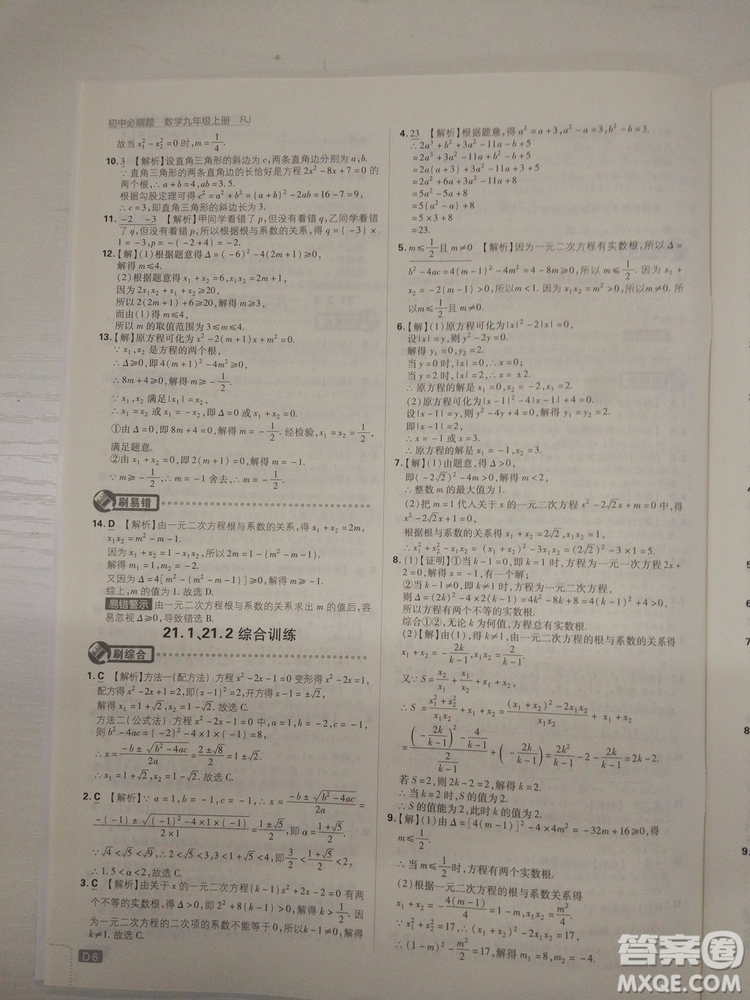 初中必刷题 数学九年级上册 RJ
故当 x₁²-x₂²=0 时, m=1/4.
10. 3 【解析】设直角三角形的斜边为 c, 两条直角边分别为 a, b.
∵ 直角三角形两条直角边的长恰好是方程 2x²-8x+7=0 的
两个根, ∴ a+b=4, ab=3.5.
根据勾股定理可得 c²=a²+b²=(a+b)²-2ab=16-7=9,
∴ c=3, 即直角三角形的斜边长为 3.
11. -2 -3 【解析】甲同学看错了 p, 但没有看错 q, 乙同学看错
了 q, 但没有看错 p, 所以根据根与系数的关系, 得 q=(-3)×
1=-3, p=-(-2+4)=-2.
12.【解】(1)根据题意得 Δ=(-6)²-4(2m+1)≥0,
解得 m≤4.
(2)根据题意得 x₁+x₂=6, x₁x₂=2m+1.
因为 2x₁x₂+x₁+x₂≥20,
所以 2(2m+1)+6≥20, 解得 m≥3.
而 m≤4, 所以 m 的取值范围为 3≤m≤4.
13.【解】原方程可化为 x²-2(m+1)x+m²=0.
∵ x₁, x₂ 是方程的两个根,
∴ Δ≥0, 即 4(m+1)²-4m²≥0,
∴ 8m+4≥0, 解得 m≥-1/2.
∵ x₁, x₂ 满足|x₁|=x₂,
∴ x₁=x₂ 或 x₁=-x₂, 即 Δ=0 或 x₁+x₂=0.
①由 Δ=0, 即 8m+4=0, 解得 m=-1/2. 经检验, m=-1/2
满足题意.
②由 x₁+x₂=0, 即 2(m+1)=0, 解得 m=-1.
∵ m≥-1/2, ∴ m=-1 舍去, ∴ m=-1/2.
刷易错
14. D 【解析】由一元二次方程根与系数的关系, 得 x₁+x₂=2m,
x₁x₂=m²-m-1.
因为 x₁+x₂=1-x₁x₂, 所以 2m=1-(m²-m-1).
解得 m₁=1, m₂=-2.
又因为 Δ=4[m²-(m²-m-1)]=4(m+1)≥0, 所以 m≥-1.
综上, m 的值为 1. 故选 D.
易错警示 由一元二次方程根与系数的关系求出 m 的值后, 容
易忽视 Δ≥0, 导致错选 B.
21.1、21.2 综合训练
刷综合
1. C 【解析】方法一(配方法): 方程 x²-2x-1=0 变形得 x²-2x=1,
配方得 x²-2x+1=2, 即(x-1)²=2, 开方得 x-1=±√2,
解得 x₁=1+√2, x₂=1-√2. 故选 C.
方法二(公式法): 方程 x²-2x-1=0 中, ∵ a=1, b=-2, c=-1,
即 b²-4ac=(-2)²-4×1×(-1)=8>0,
∴ x=(-b±√(b²-4ac))/2a=(2±√8)/2=1±√2,
∴ x₁=1+√2, x₂=1-√2. 故选 C.
2. C 【解析】∵ a=1, b=-1, c=-1, ∴ x=(-b±√(b²-4ac))/2a=
(-(-1)±√((-1)²-4×1×(-1)))/(2×1)=(1±√5)/2, ∴ 较大实数根 a=(1+√5)/2.
∵ √4<√5<√9, ∴ 2<√5<3, ∴ 3/2<(1+√5)/2<2,
∴ 1.5<a<2. 故选 C.
3. C 【解析】由关于 x 的一元二次方程(k-1)x²+x-2=0 有两
个不相等的实数根, 得 Δ=1²+8(k-1)>0, 解得 k>7/8. 因
为一元二次方程的二次项的系数不能等于 0, 所以 k-1≠0, 即
k≠1. 故选 C.
D6
4. 23 【解析】根据题意, 得 a²=a+3, a³=a²+3a, b²=b+3,
∴ 2a³+b²+3a²-11a-b+5
=2a³+b+3+3a²-11a-b+5
=2a³+3a²-11a+8
=2(a²+3a)+3a²-11a+8
=2a²+6a+3a²-11a+8
=5a²-5a+8
=5(a²-a)+8
=5×3+8
=23.
5. m≤1/2 且 m≠0 【解析】因为一元二次方程有实数根, 所以 Δ=
b²-4ac=[-(m-1)]²-4m²·1/4=1-2m≥0, 所以 m≤1/2. 因
为 m²≠0, 所以 m≠0, 所以 m≤1/2 且 m≠0.
6.【解】(1)原方程可化为|x|²-2|x|=0.
设|x|=y, 则 y²-2y=0.
解得 y₁=0, y₂=2.
当 y=0 时, |x|=0, ∴ x=0;
当 y=2 时, |x|=2, ∴ x=±2.
∴ 原方程的解是 x₁=0, x₂=-2, x₃=2.
(2)原方程可化为|x-1|²-4|x-1|+4=0.
设|x-1|=y, 则 y²-4y+4=0, 解得 y₁=y₂=2,
即|x-1|=2,
∴ x=-1 或 x=3.
∴ 原方程的解是 x₁=-1, x₂=3.
7.【解】(1)由题意, 得 Δ>0,
即(-2√2)²-4m>0, 解得 m<2,
∴ 整数 m 的最大值为 1.
(2)把 m=1 代入关于 x 的一元二次方程 x²-2√2x+m=0, 得
x²-2√2x+1=0,
根据根与系数的关系, 得 x₁+x₂=2√2, x₁x₂=1,
∴ x₁²+x₂²-x₁x₂=(x₁+x₂)²-3x₁x₂=(2√2)²-3×1=5.
8. (1)【证明】①当 k-1=0 即 k=1 时, 方程为一元一次方程
2x=1, x=1/2 是方程的一个解;
②当 k-1≠0 即 k≠1 时, 方程为一元二次方程,
则 Δ=(2k)²-4×2(k-1)=4k²-8k+8=4(k-1)²+4>0,
所以方程有两个不等的实数根.
综合①②, 无论 k 为何值, 方程总有实数根.
(2)【解】由(1)得, k≠1, 根据一元二次方程根与系数的关系得
x₁+x₂=-2k/(k-1), x₁x₂=2/(k-1).
又∵ S=x₂/x₁+x₁/x₂+x₁+x₂,
∴ S=(x₁²+x₂²)/(x₁x₂)+x₁+x₂=((x₁+x₂)²-2x₁x₂)/(x₁x₂)+x₁+x₂
=((-2k/(k-1))²-4/(k-1))/(2/(k-1))+(-2k/(k-1))=2k-2.
若 S=2, 则 2k-2=2, 解得 k=2,
∴ 当 k=2 时, S 的值为 2,
∴ S 的值能为 2, 此时 k=2.
9.【解】(1)当 m=0 时, Δ=[4(m-1)]²-4×4m²=-32m+16=16>0,
∴ 当 m=0 时, 方程有两个实数根.
(2)根据一元二次方程的根与系数的关系得
x₁+x₂=-4(m-1)/4=1-m, x₁x₂=m²/4.
∵ x₁²+x₂²=17, ∴ (x₁+x₂)²-2x₁x₂=17,
∴ (1-m)²-m²/2=17, 解得
答案圈
MXQE.COM